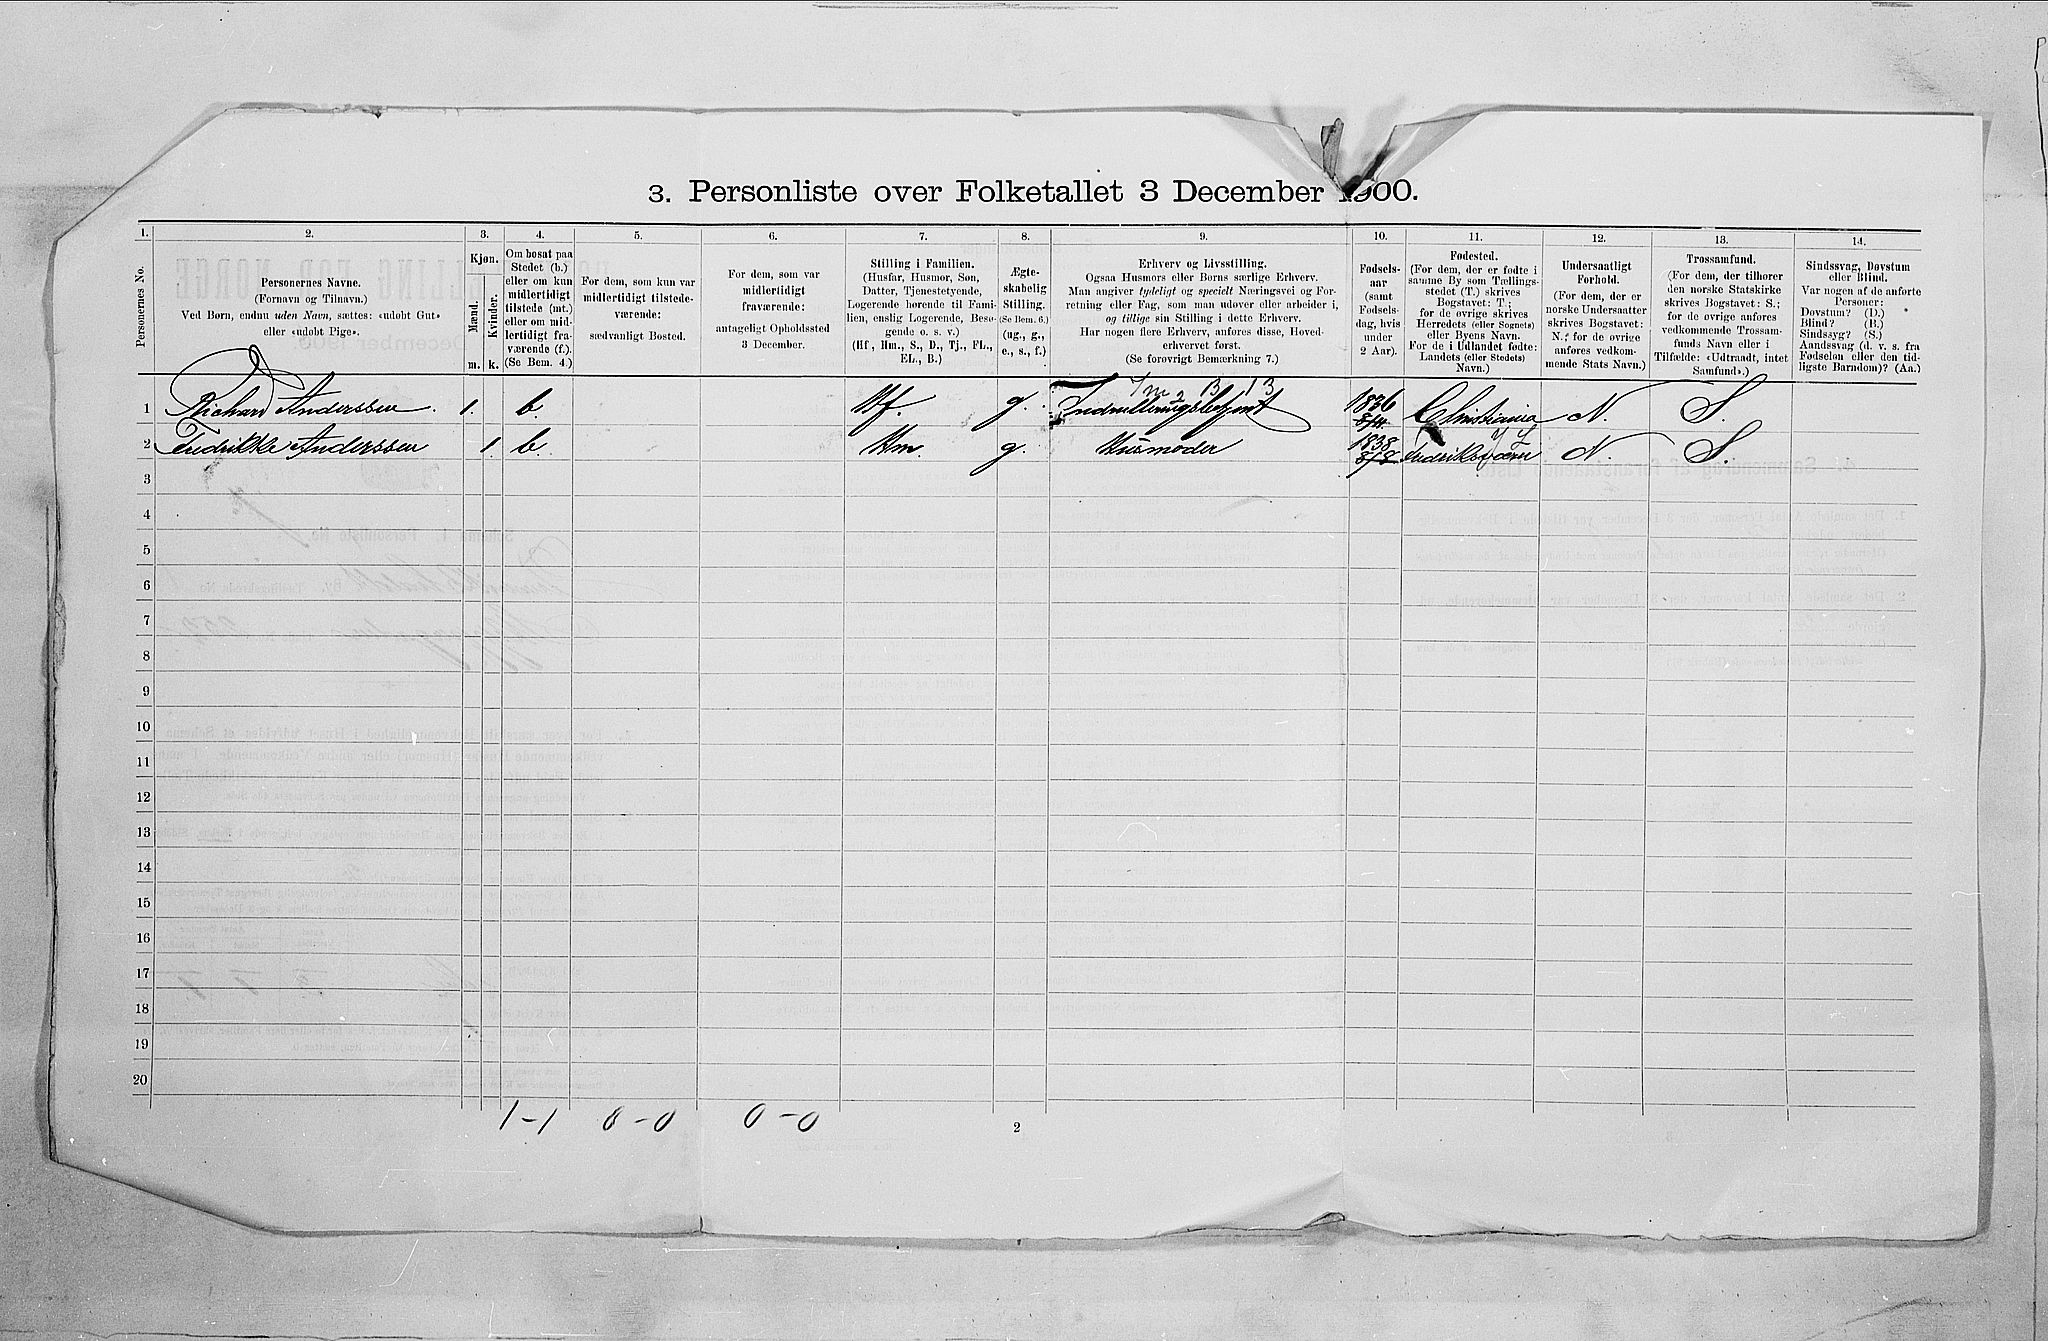 3. Personliste over Folketallet 3 December 1900.
1. 2. 3. 4. 5. 6. 7. 8. 9. 10. 11. 12. 13. 14.
Personernes No.
Personernes Navne.
(Fornavn og Tilnavn.)
Ved Børn, endnu uden Navn, sættes: «udobt Gut»
eller «udobt Pige».
Kjøn.
Mænd.
Kvinder.
m. k.
Om bosat paa
Stedet (b.)
eller om kun
midlertidigt
tilstede (mt.)
eller om mid-
lertidigt fra-
værende (f.).
(Se Bem. 4.)
For dem, som kun var
midlertidigt tilstede-
værende:
sædvanligt Bosted.
For dem, som var
midlertidigt
fraværende:
antageligt Opholdssted
3 December.
Stilling i Familien.
(Husfar, Husmor, Søn,
Datter, Tjenestetyende,
Logerende hørende til Fami-
lien, enslig Logerende, Besø-
gende o. s. v.)
(Hf., Hm., S., D., Tj., FL.,
EL., B.)
Ægte-
skabelig
Stilling.
(Se Bem. 6.)
(ug., g.,
e., s., f.)
Erhverv og Livsstilling.
Ogsaa Husmors eller Børns særlige Erhverv.
Man angiver tydeligt og specielt Næringsvei og For-
retning eller Fag, som man udover eller arbeider i,
og tillige sin Stilling i dette Erhverv.
Har nogen flere Erhverv, anføres disse, Hoved-
erhvervet først.
(Se forøvrigt Bemærkning 7.)
Fødsels-
aar
(samt
Fødsels-
dag, hvis
under
2 Aar).
Fødested.
(For dem, der er fødte i
samme By som Tællings-
stedet (T.) skrives
Bogstavet: T.;
for de øvrige skrives
Herredets (eller Sognets)
eller Byens Navn.
For de i Udlandet fødte:
Landets (eller Stedets)
Navn.)
Undersaatligt
Forhold.
(For dem, der er
norske Undersaatter
skrives Bogstavet:
N.; for de øvrige
anføres vedkom-
mende Stats Navn.)
Trossamfund.
(For dem, der tilhører
den norske Statskirke
skrives Bogstavet: S.;
for de øvrige anføres
vedkommende Trossam-
funds Navn eller i
Tilfælde: «Udtraadt, intet
Samfund».)
Sindssvag, Døvstum
eller Blind.
Var nogen af de anførte
Personer:
Døvstum? (D.)
Blind? (B.)
Sindssyg? (S.)
Aandssvag (d. v. s. fra
Fødselen eller den tid-
ligste Barndom)? (Aa.)
1 Richard Anderssen. 1. b. Hf. g. 1836 Christiania N. S.
2 Fredrikke Anderssen 1. b. Hm g. Husmoder 1838 8/8 N. S.
3
4
5
6
7
8
9
10
11
12
13
14
15
16
17
18
19
20
1-1 0-0 0-0
2